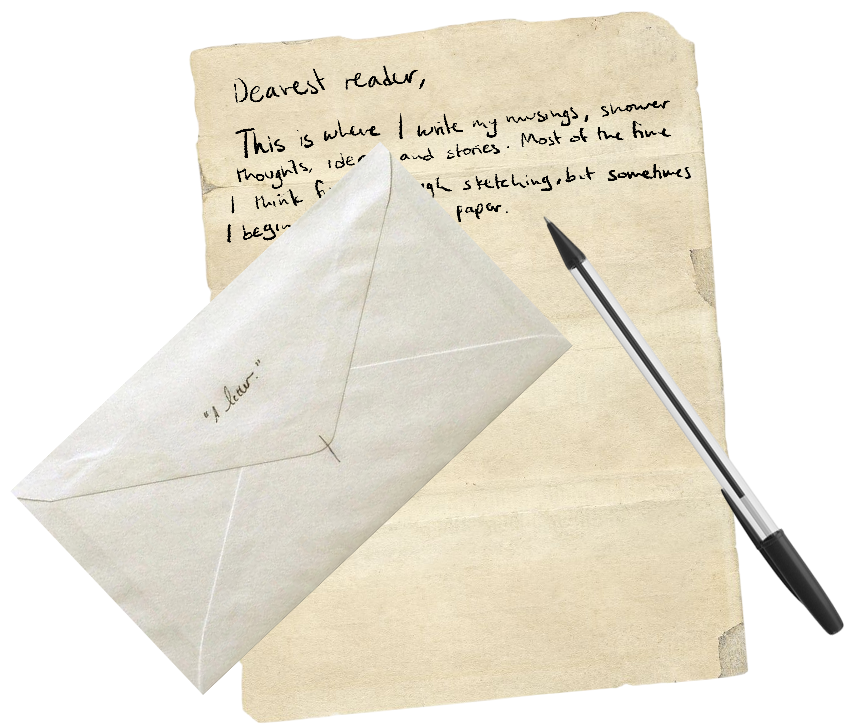 Dearest reader,
This is where I write my musings, shower
thoughts, and stories. Most of the time
I think sketching, but sometimes
I begin paper.
"A letter."